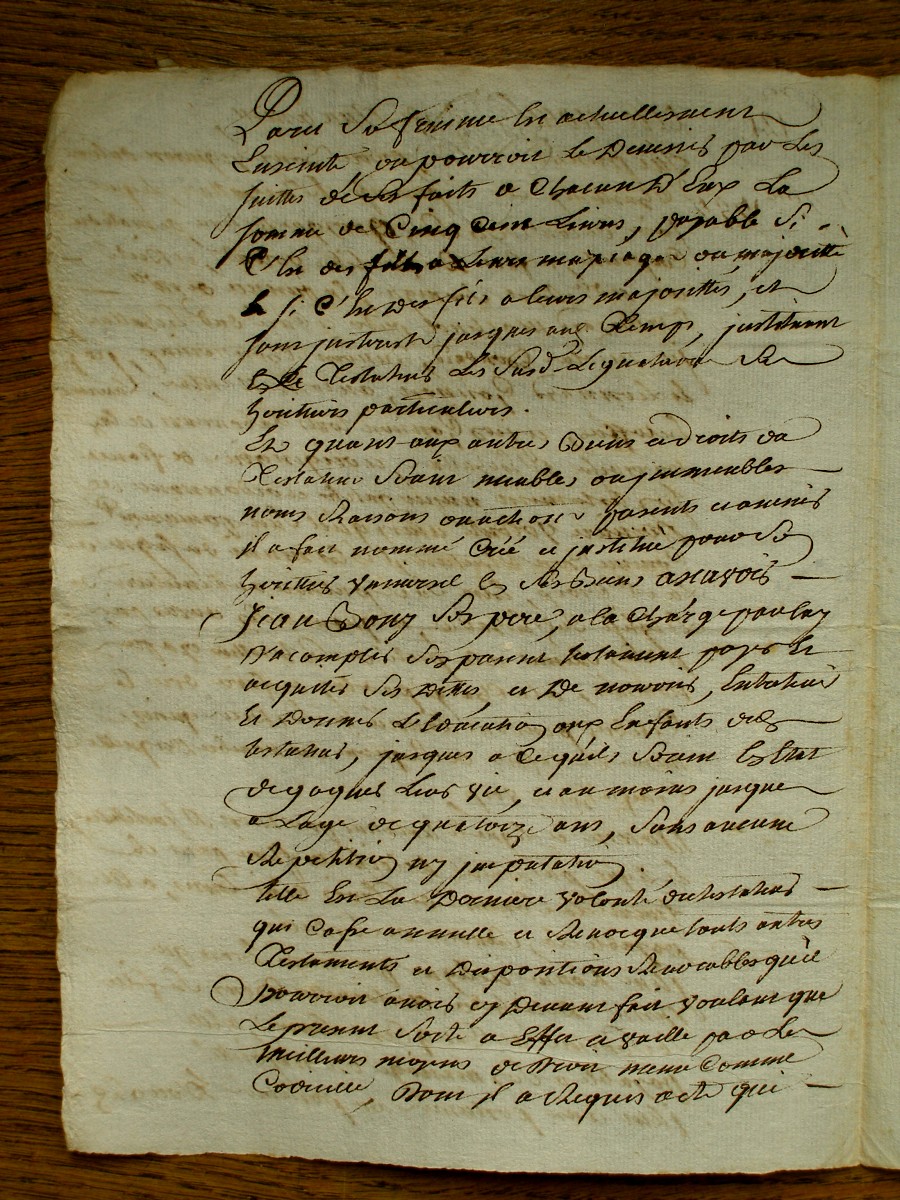 Dont sa femme est actuellement
Enceinte ou pourroit le Devenir par les
suittes de ses faits a Chacun D'Eux La
somme de Cinq Cent Livres, payable si
C'est des filles a Leurs mariages ou majorité
& si C'est Des fils a leurs majorittés, et
sans justqu'à jusques au Temps, justituant
Le Testateur Les Susd. Legataires Ses
heritiers particuliers.
Et quant aux autres Biens et Droits du
Testateur Soint meubles ou jmmeubles
noms Raisons ou actions presents et avenir
il a fait nommé Créé et justitué pour Son
heritier vniversel Et Ses Biens a sçavoir
Jean Bony Son pere, a la Charge par luy
D'acomplir Son present testament payer Et
acquiter Ses Dettes et De nourrir, Entretenir
Et Donner L'Education aux Enfants du
testateur, jusques a Ce qu'ils Soint En Etat
de gagner Leur vie, et au moins jusques
a L'age de quatorze ans, Sans aucune
Repetition ny jmputation
telle Est La Derniere volonté du testateur
qui Casse annulle et Revocque touts autres
Testaments et Dispositions Revocables qu'il
pourroit avoir cy Devant fait voulant que
Le present Sorte a Effet et vaille par Les
meilleurs moyens de Droit meme Comme
Codicille, Dont il a Requis acte qui